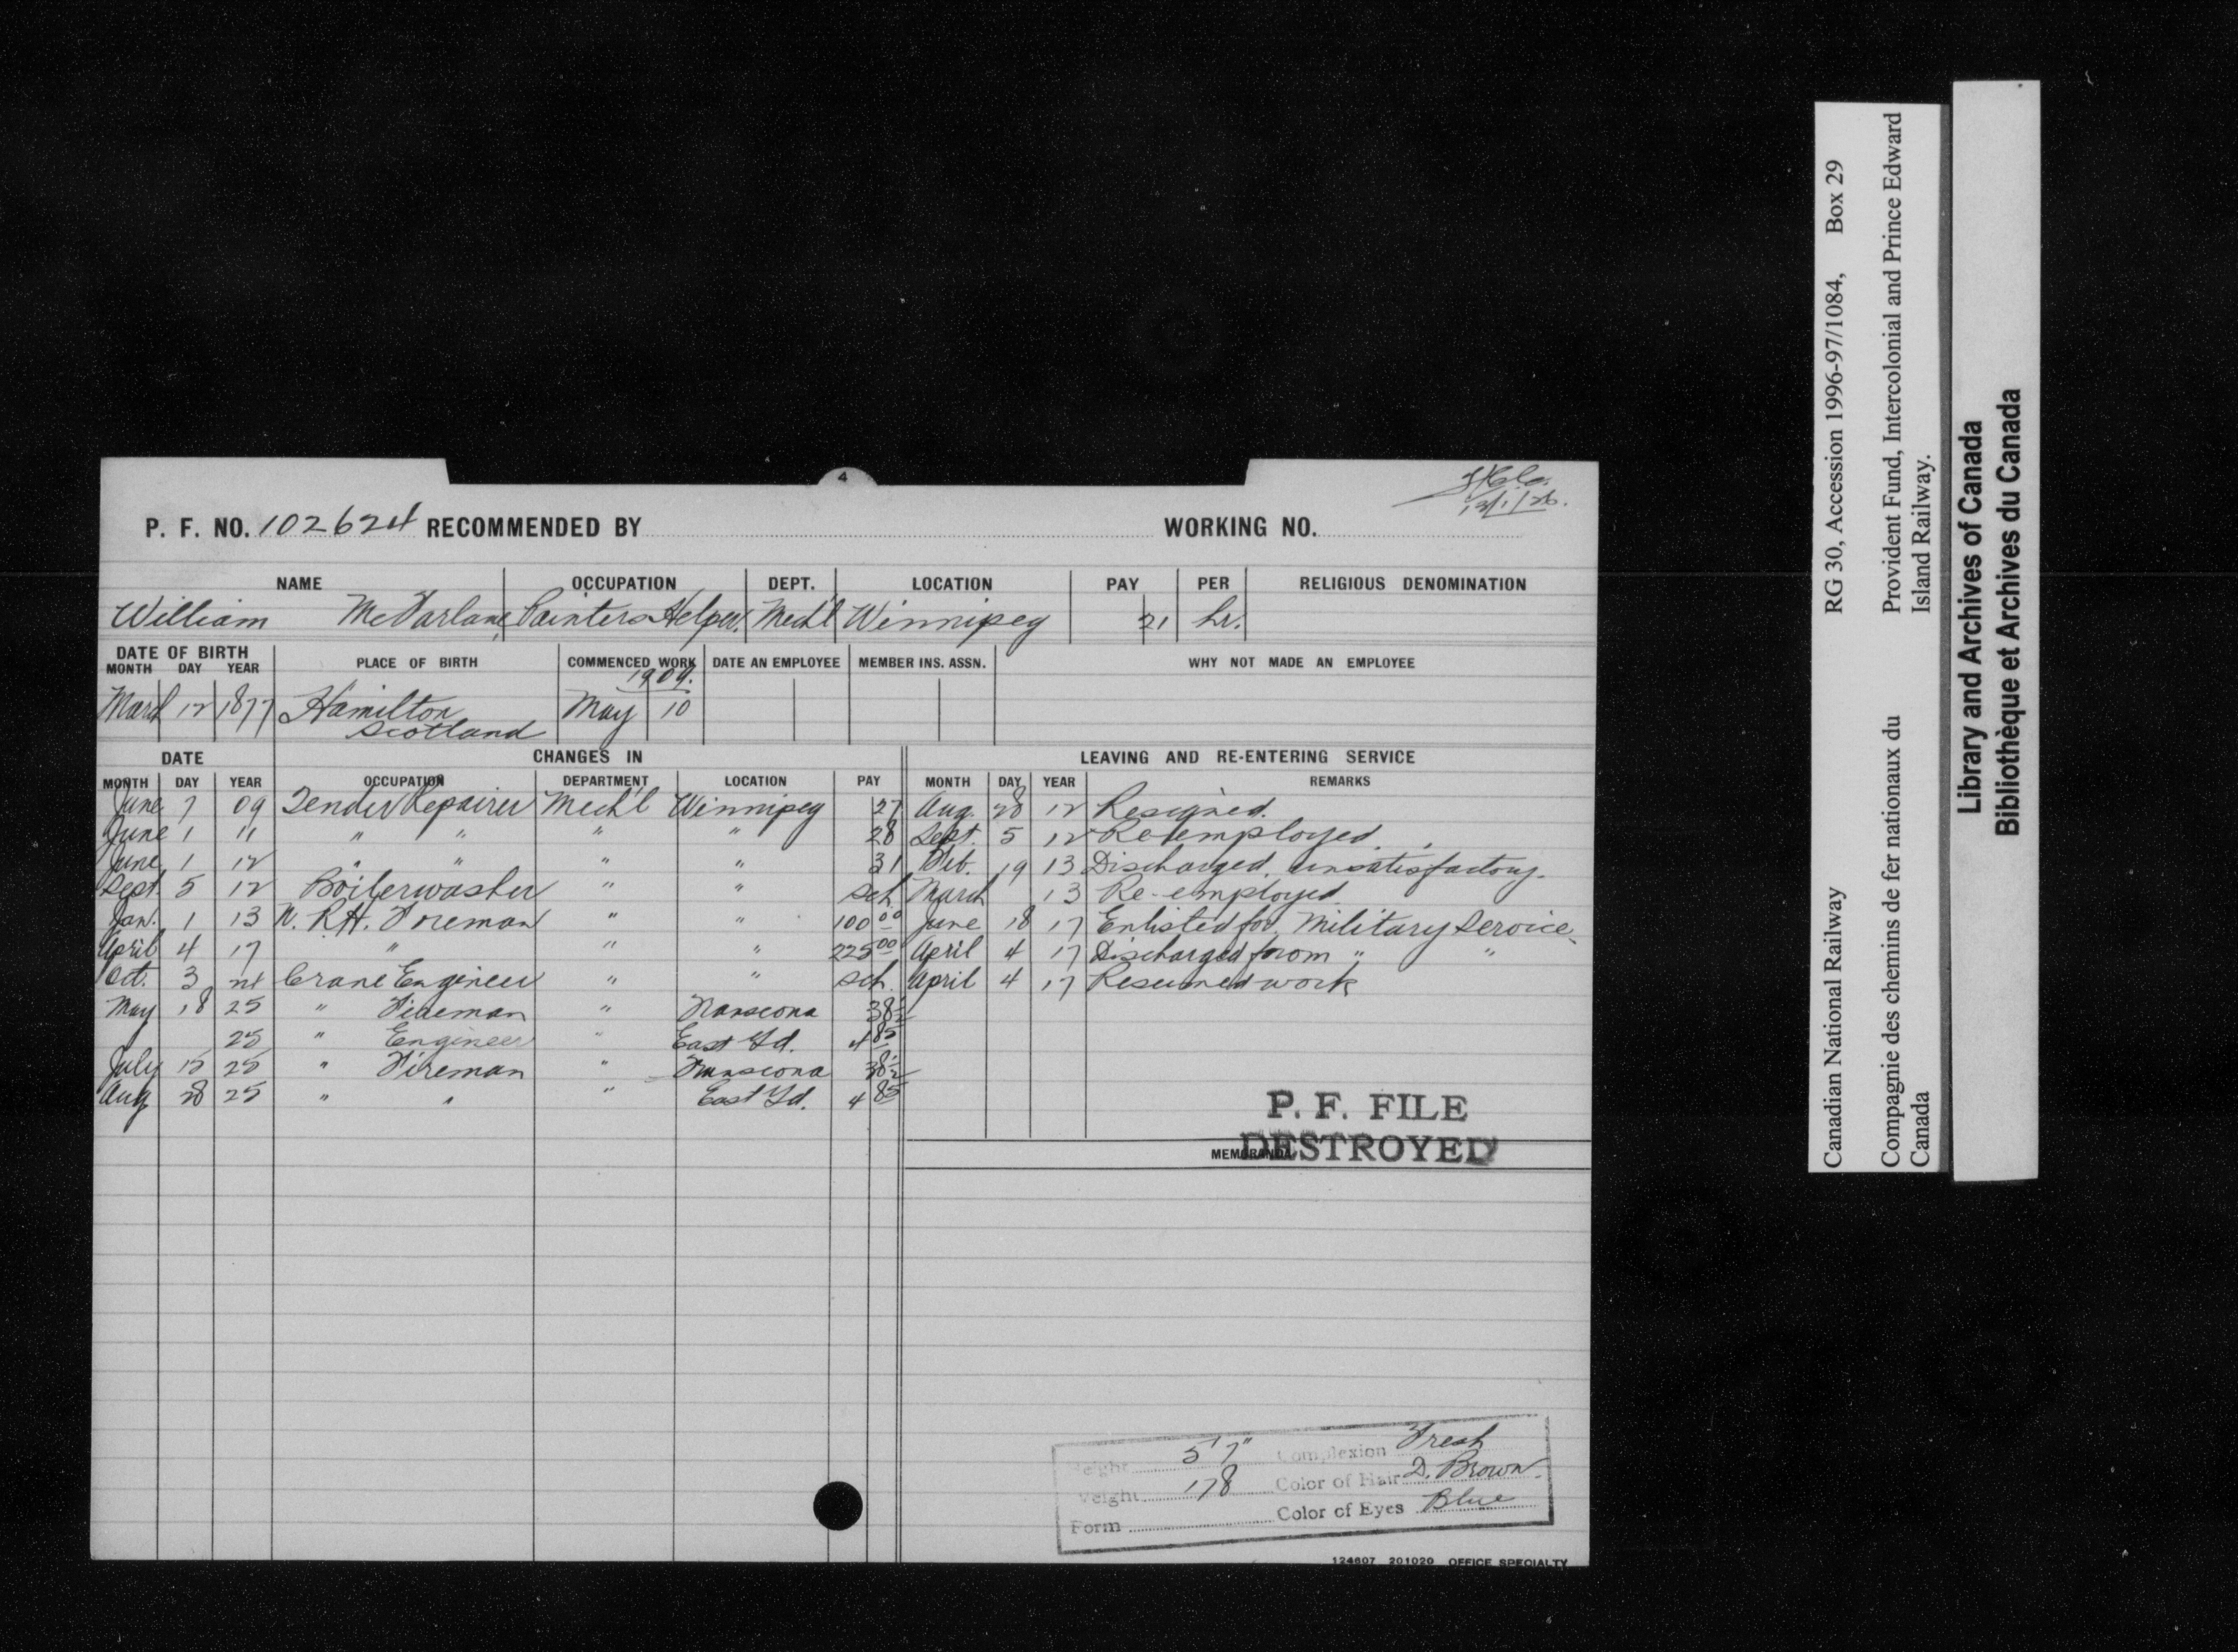 4
P. F. NO. 102624 RECOMMENDED BY WORKING NO.
NAME OCCUPATION DEPT. LOCATION PAY PER RELIGIOUS DENOMINATION
William McFarlane Painters Helper. Mech'l Winnipeg 21 hr.
DATE OF BIRTH
MONTH DAY YEAR PLACE OF BIRTH COMMENCED WORK DATE AN EMPLOYEE MEMBER INS. ASSN. WHY NOT MADE AN EMPLOYEE
1909.
March 12 1877 Hamilton May 10
Scotland
DATE CHANGES IN LEAVING AND RE-ENTERING SERVICE
MONTH DAY YEAR OCCUPATION DEPARTMENT LOCATION PAY MONTH DAY YEAR REMARKS
June 7 09 Tender Repairer Mech'l Winnipeg 27 Aug. 28 12 Resigned.
June 1 11 " " " " 28 Sept. 5 12 Re-employed.
June 1 12 " " " " 31 Feb. 19 13 Discharged, unsatisfactory.
Sept. 5 12 Boilerwasher " " Sch. March 13 Re-employed
Jan. 1 13 N. R.H. Foreman " " 100 00 June 18 17 Enlisted for Military Service
April 4 17 " " " 225 00 April 4 17 Discharged from " "
Oct. 3 24 Crane Engineer " " Sch. April 4 17 Resumed work
May 18 25 " Fireman " Transcona 38½
25 " Engineer " East Yd. 4 85
July 15 25 " Fireman " Transcona 38½
Aug 28 25 " " " East Yd. 4 85
P. F. FILE
DESTROYED
MEMORANDA
Height 5'7" Complexion Fresh
Weight 178 Color of Hair D. Brown.
Form Color of Eyes Blue
124607 201020 OFFICE SPECIALTY
Canadian National Railway RG 30, Accession 1996-97/1084, Box 29
Compagnie des chemins de fer nationaux du Provident Fund, Intercolonial and Prince Edward
Canada Island Railway.
Library and Archives of Canada
Bibliothèque et Archives du Canada